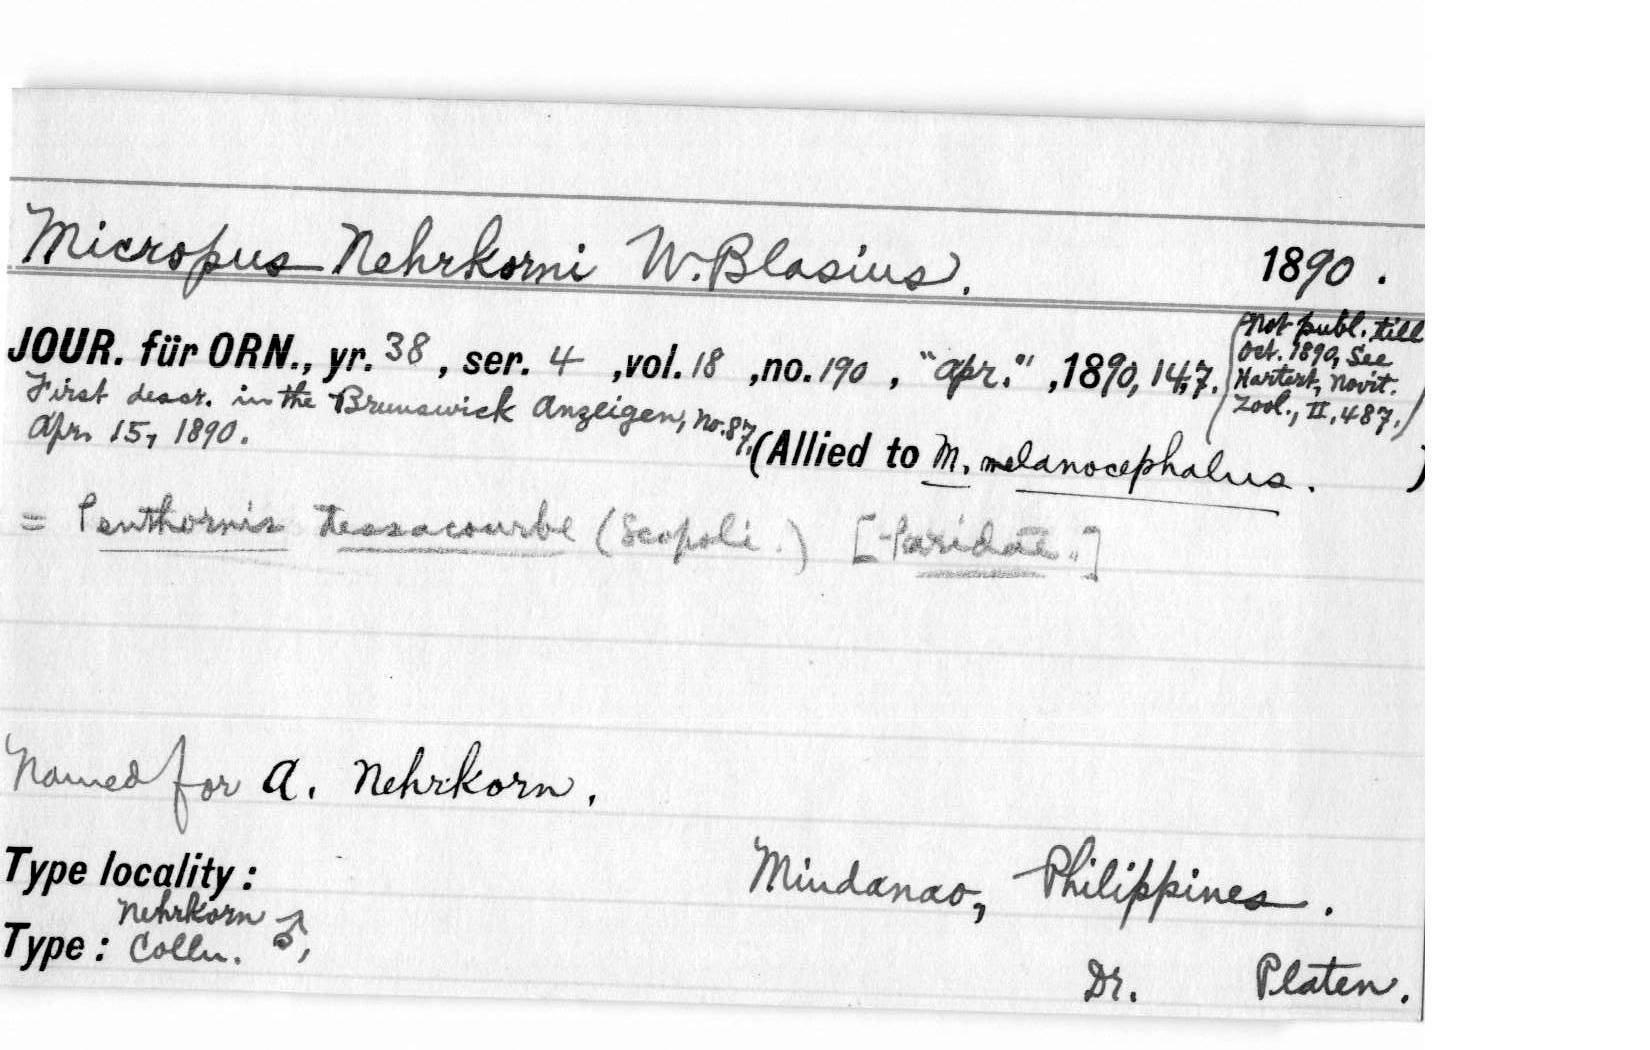 Micropus Nehrkorni W. Blasius. 1890.
JOUR. für ORN., yr. 38, ser. 4, vol. 18, no. 190, "Apr.", 1890, 147.
(Not publ. till
Oct. 1890, See
Hartert, Novit.
Zool., II, 487.)
First descr. in the Brunswick Anzeigen, No. 87,
Apr. 15, 1890.
(Allied to M. melanocephalus. )
= Penthornis tessacourbe (Scopoli.) [Paridae.]
Named for A. Nehrkorn.
Type locality: Mindanao, Philippines.
Type: Nehrkorn
Colln. ♂,
Dr. Platen.